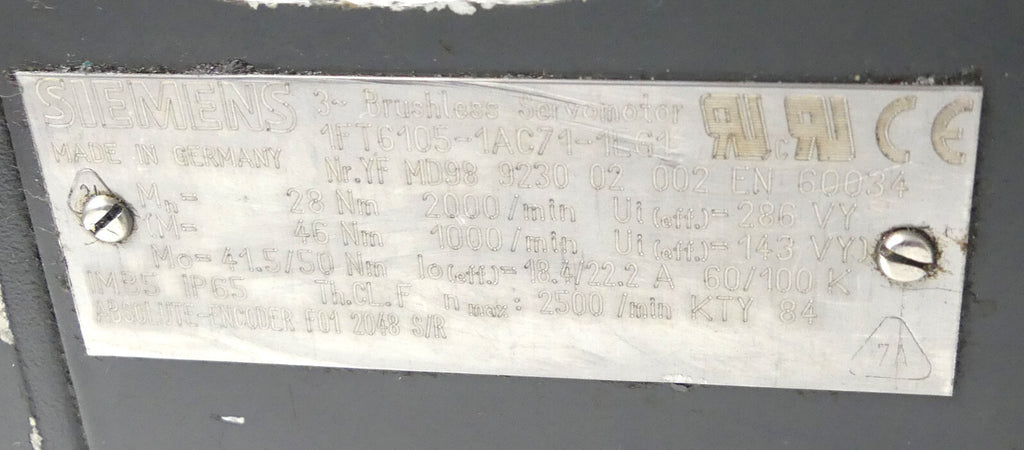 SIEMENS 3~ Brushless Servomotor
1FT6105-1AC71-1LG1
MADE IN GERMANY
Nr.YF MD98 9230 02 002 EN 60034
Mn= 28 Nm 2000/min Ui(eff.)= 286 VY
(M= 46 Nm 1000/min Ui(eff.)= 143 VY)
Mo= 41.5/50 Nm Io(eff.)= 18.4/22.2 A 60/100 K
IMB5 IP65 Th.CL.F nmax: 2500/min KTY 84
ABSOLUTE-ENCODER F01 2048 S/R